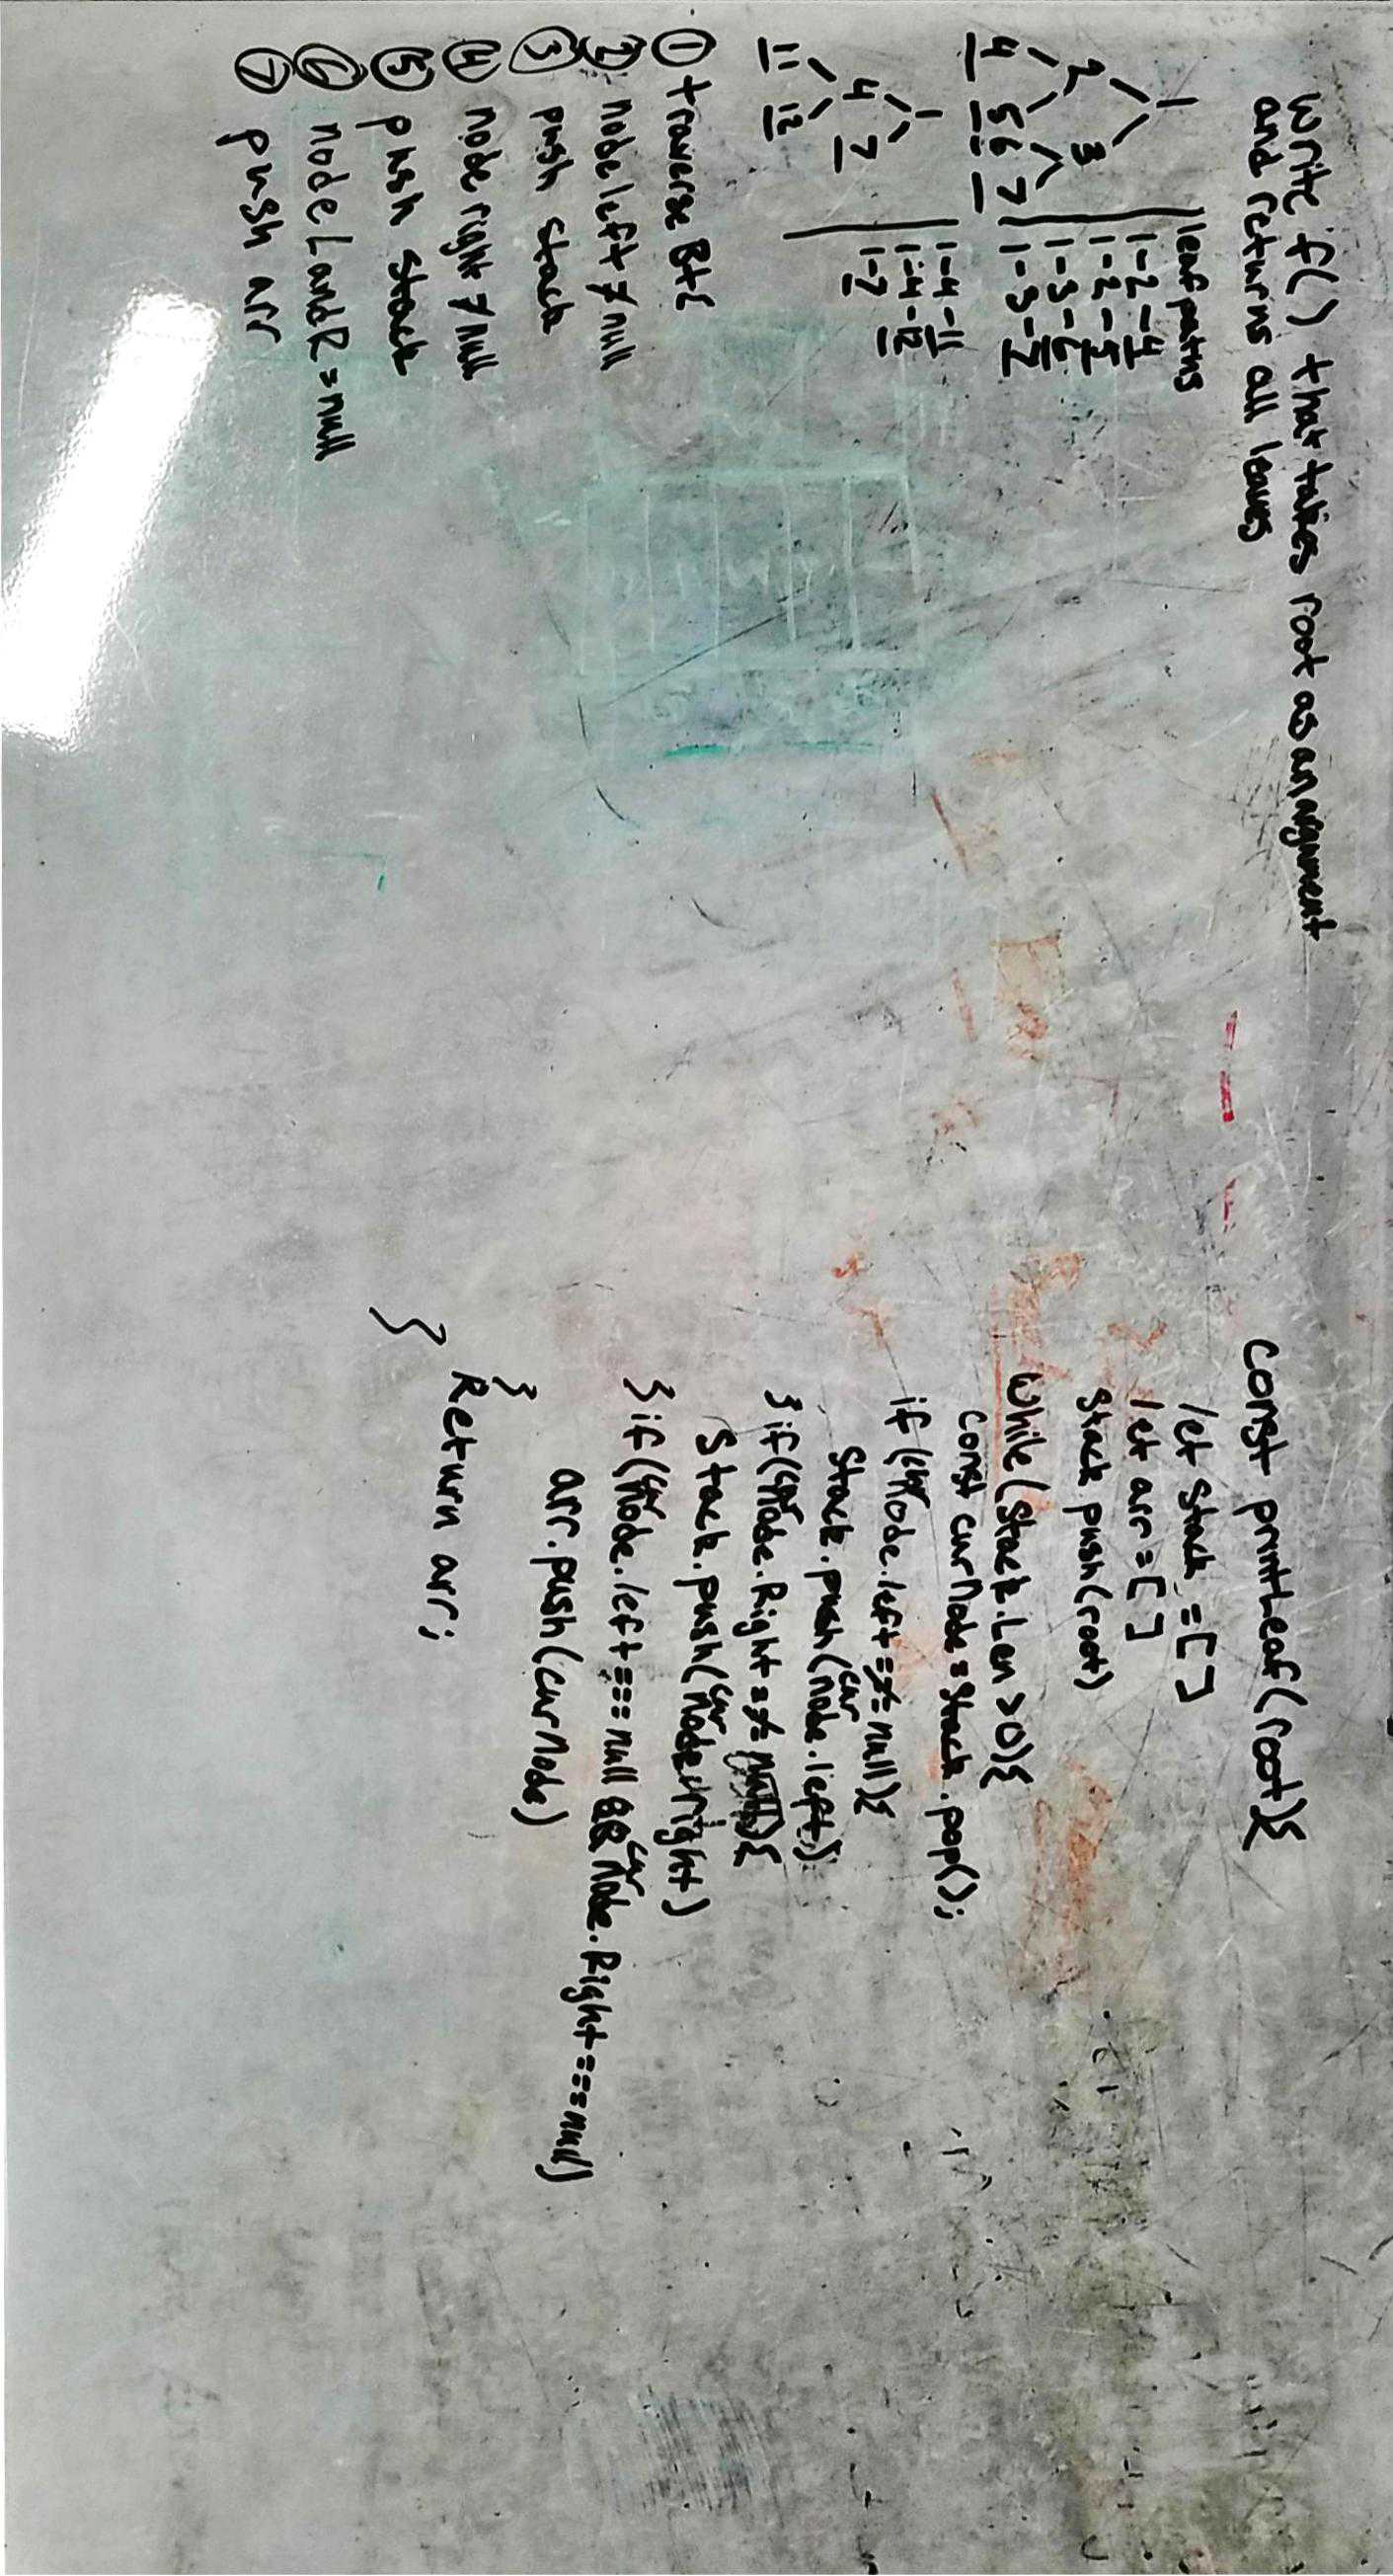 write f() that takes root as an argument
and returns all leaves
1
2 3
4 5 6 7
leaf paths
1-2-4
1-2-5
1-3-6
1-3-7
1
4 7
11 12
1-4-11
1-4-12
1-7
① traverse Bt
② node left ≠ null
③ push stack
④ node right ≠ null
⑤ push stack
⑥ node L and R = null
⑦ push arr
const printLeaf(root){
let stack = []
let arr = []
stack push(root)
while(stack.Len > 0){
const curNode = stack.pop();
if (curNode.left =≠= null){
stack.push(curNode.left);
} if (curNode.Right =≠= null){
Stack.push(curNode.right)
} if (curNode.left === null && curNode.Right === null)
arr.push(curNode)
}
Return arr;
}